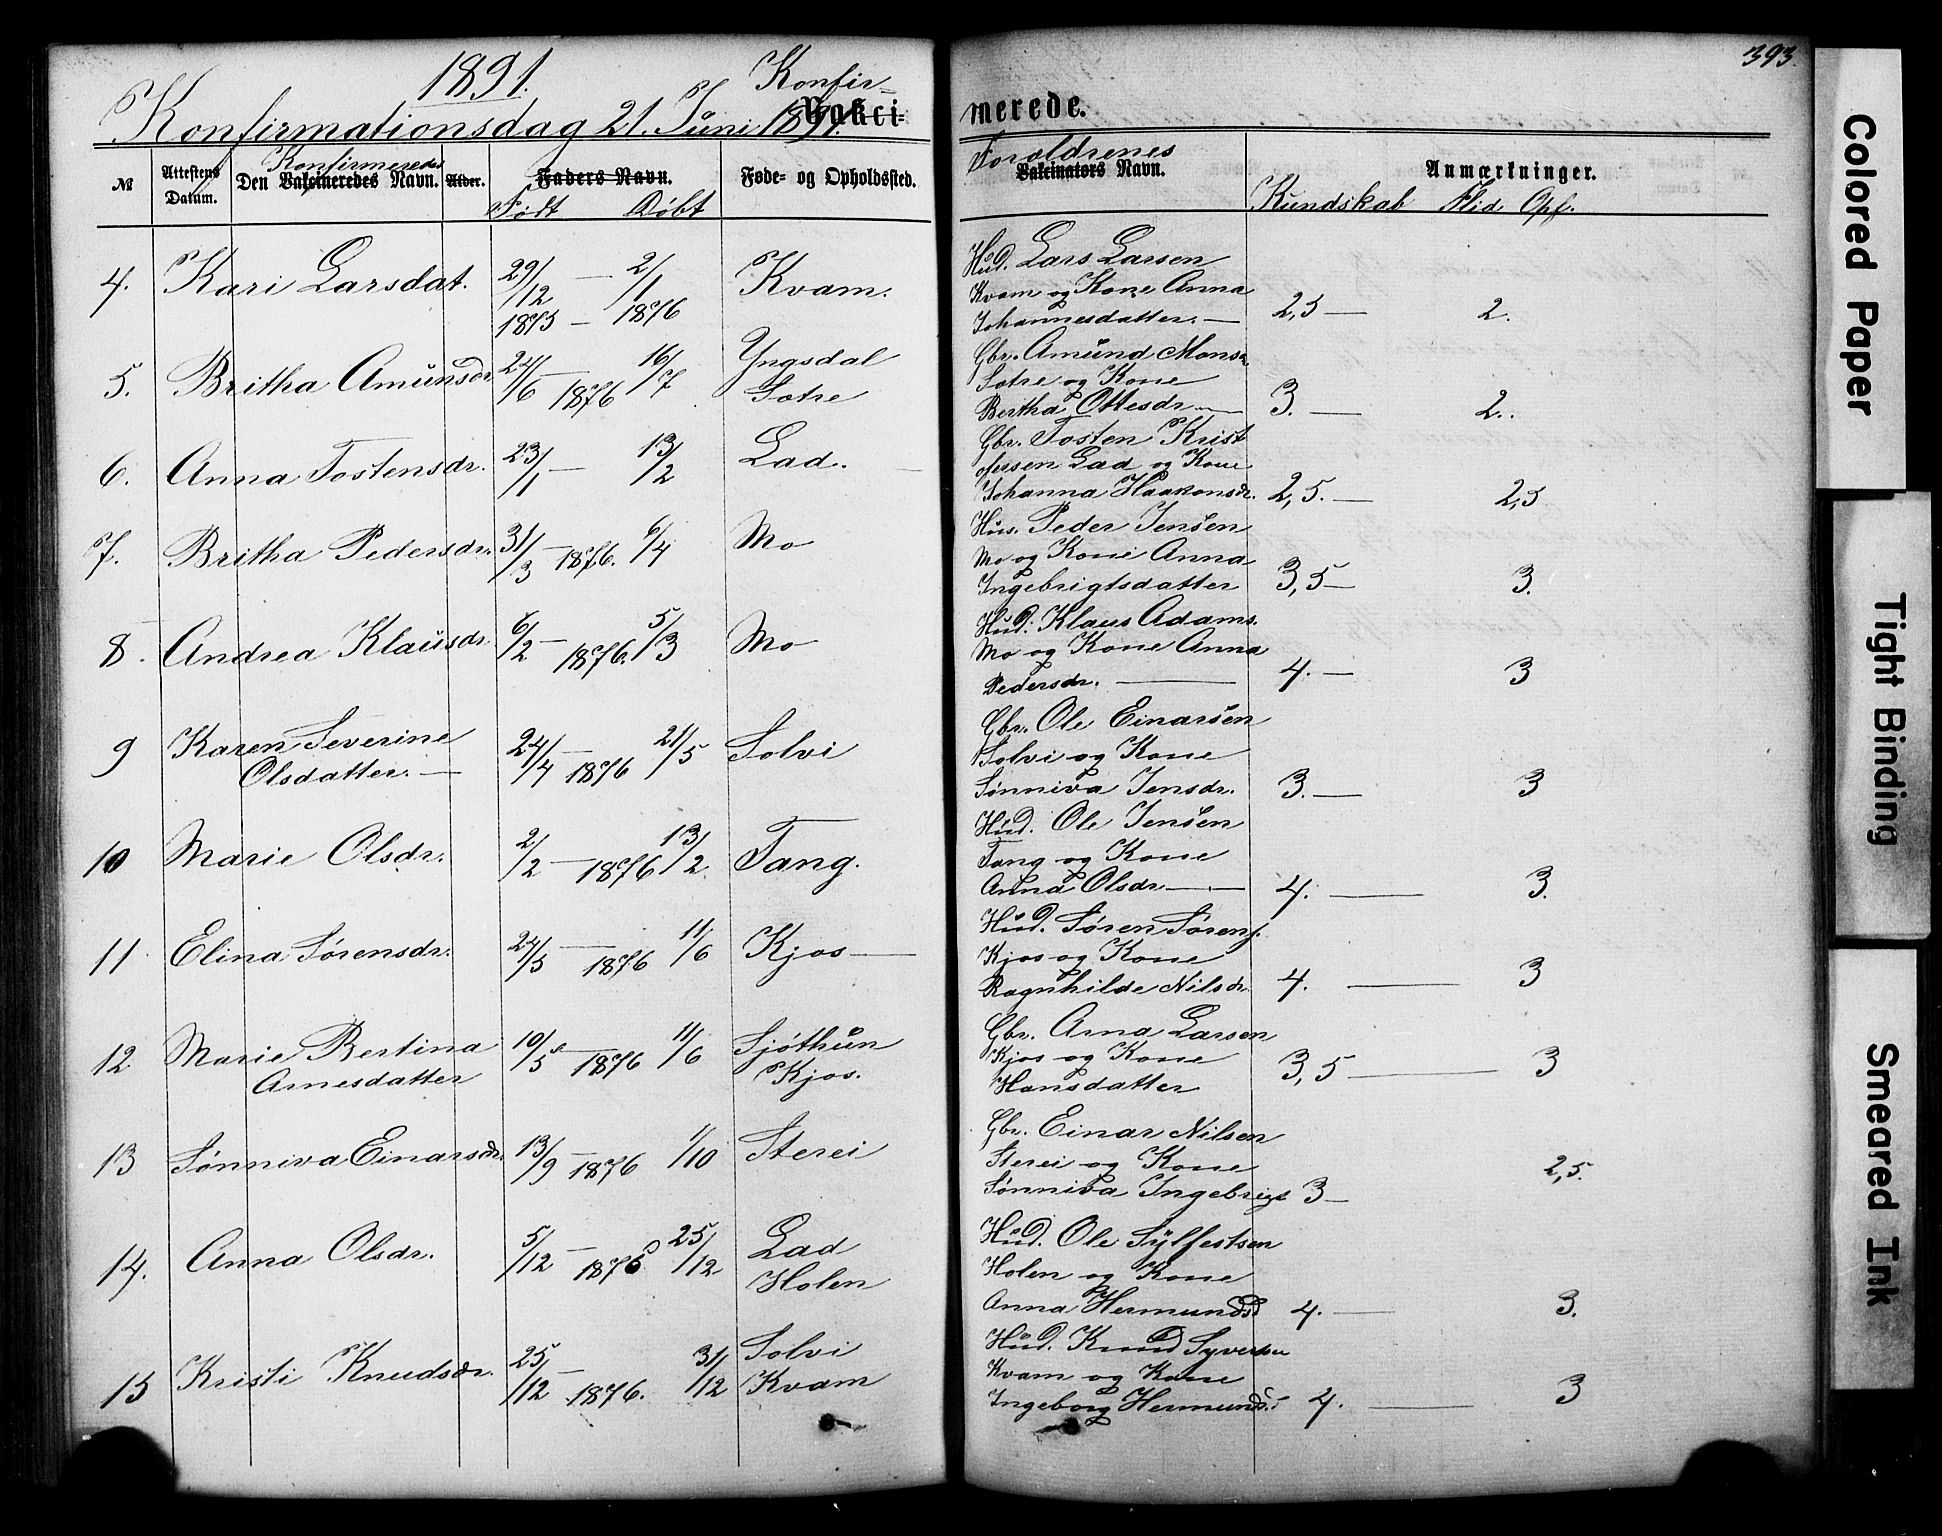 1891.
393.
Konfirmationsdag 21. Juni 1891.
Konfir=
Vakci-
merede.
№
Attestens Datum.
Konfirmeredes
Den Vakcineredes Navn.
Alder.
Faders Navn.
Født Døbt
Føde- og Opholdssted.
Forældrenes
Vakcinators Navn.
Anmærkninger.
Kundskab Flid Opf.
4. Kari Larsdat. 29/12 1875 — 2/1 1876 Kvam.
Hud. Lars Larsen
Kvam og Kone Anna
Johannesdatter. — 2,5 — 2.
5. Britha Amunsdr. 24/6 — 1876 16/7 Yngsdal
Sotre
Gbr. Amund Monsr
Sotre og Kone
Bertha Ottesdr. — 3. — 2.
6. Anna Tostensdr. 23/1 — 13/2 Lad.
Gbr. Tosten Krist
ofersen Lad og Kone
Johanna Haakonsdr. 2,5. — 2,5
7. Britha Pedersdr. 31/3 — 1876. 6/4 Mo
Hus. Peder Jensen
Mo og Kone Anna
Ingebrigtsdatter 3,5 — 3.
8. Andrea Klausdr. 6/2 — 1876. 5/3 Mo
Hud. Klaus Adams.
Mo og Kone Anna
Pedersdr. — 4. — 3
9 Karen Severine
Olsdatter. — 24/4 — 1876 21/5 Solvi
Gbr. Ole Einarsen
Solvi og Kone
Sønniva Jensdr. 3. — 3
10 Marie Olsdr. 2/2 — 1876 13/2 Tang.
Hud. Ole Jensen
Tang og Kone
Anna Olsdr. — 4. — 3.
11 Elina Sørensdr. 24/5 — 1876 11/6 Kjos —
Hud. Søren Sørens.
Kjos og Kone
Ragnhilde Nilsdr. 4. — 3
12 Marie Bertina
Arnesdatter 10/5 — 1876 11/6 Sjøthun
Kjos.
Gbr. Arna Larsen
Kjos og Kone
Hansdatter 3,5 — 3
13 Sønniva Einarsdr. 13/9 — 1876 1/10 Sterei
Gbr. Einar Nilsen
Sterei og Kone
Sønniva Ingebrigt 3 — 2,5.
14. Anna Olsdr. 5/12 — 1876 25/12 Lad
Holen
Hud. Ole Sylfestsen
Holen og Kone
Anna Hermundsd 4. — 3.
15 Kristi Knudsdr. 25/12 — 1876. 31/12 Solvi
Kvam
Hud. Knud Syversen
Kvam og Kone
Ingeborg Hermunds. 4. — 3
Colored Paper
Tight Binding
Smeared Ink